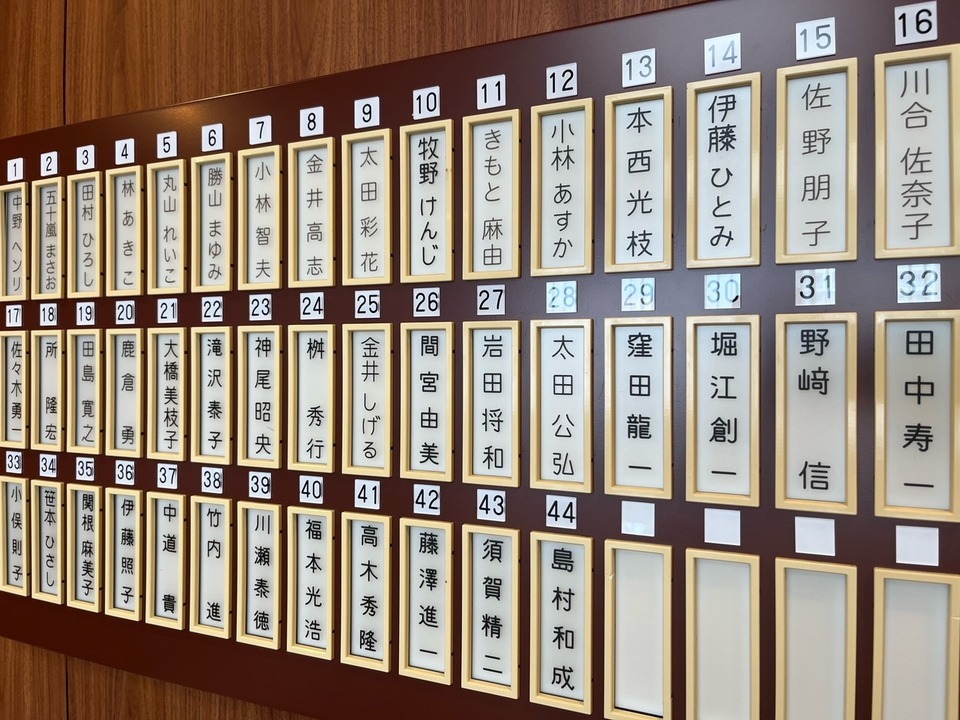 1 中野 ヘンリ
2 五十嵐 まさお
3 田村 ひろし
4 林 あきこ
5 丸山 れいこ
6 勝山 まゆみ
7 小林智夫
8 金井高志
9 太田彩花
10 牧野 けんじ
11 きもと 麻由
12 小林 あすか
13 本西光枝
14 伊藤 ひとみ
15 佐野朋子
16 川合 佐奈子
17 佐々木勇一
18 所 隆宏
19 田島寛之
20 鹿倉 勇
21 大橋美枝子
22 滝沢泰子
23 神尾昭央
24 桝 秀行
25 金井しげる
26 間宮由美
27 岩田将和
28 太田公弘
29 窪田龍一
30 堀江創一
31 野﨑 信
32 田中寿一
33 小俣則子
34 笹本ひさし
35 関根麻美子
36 伊藤照子
37 中道 貴
38 竹内 進
39 川瀬泰徳
40 福本光浩
41 高木秀隆
42 藤澤進一
43 須賀精二
44 島村和成